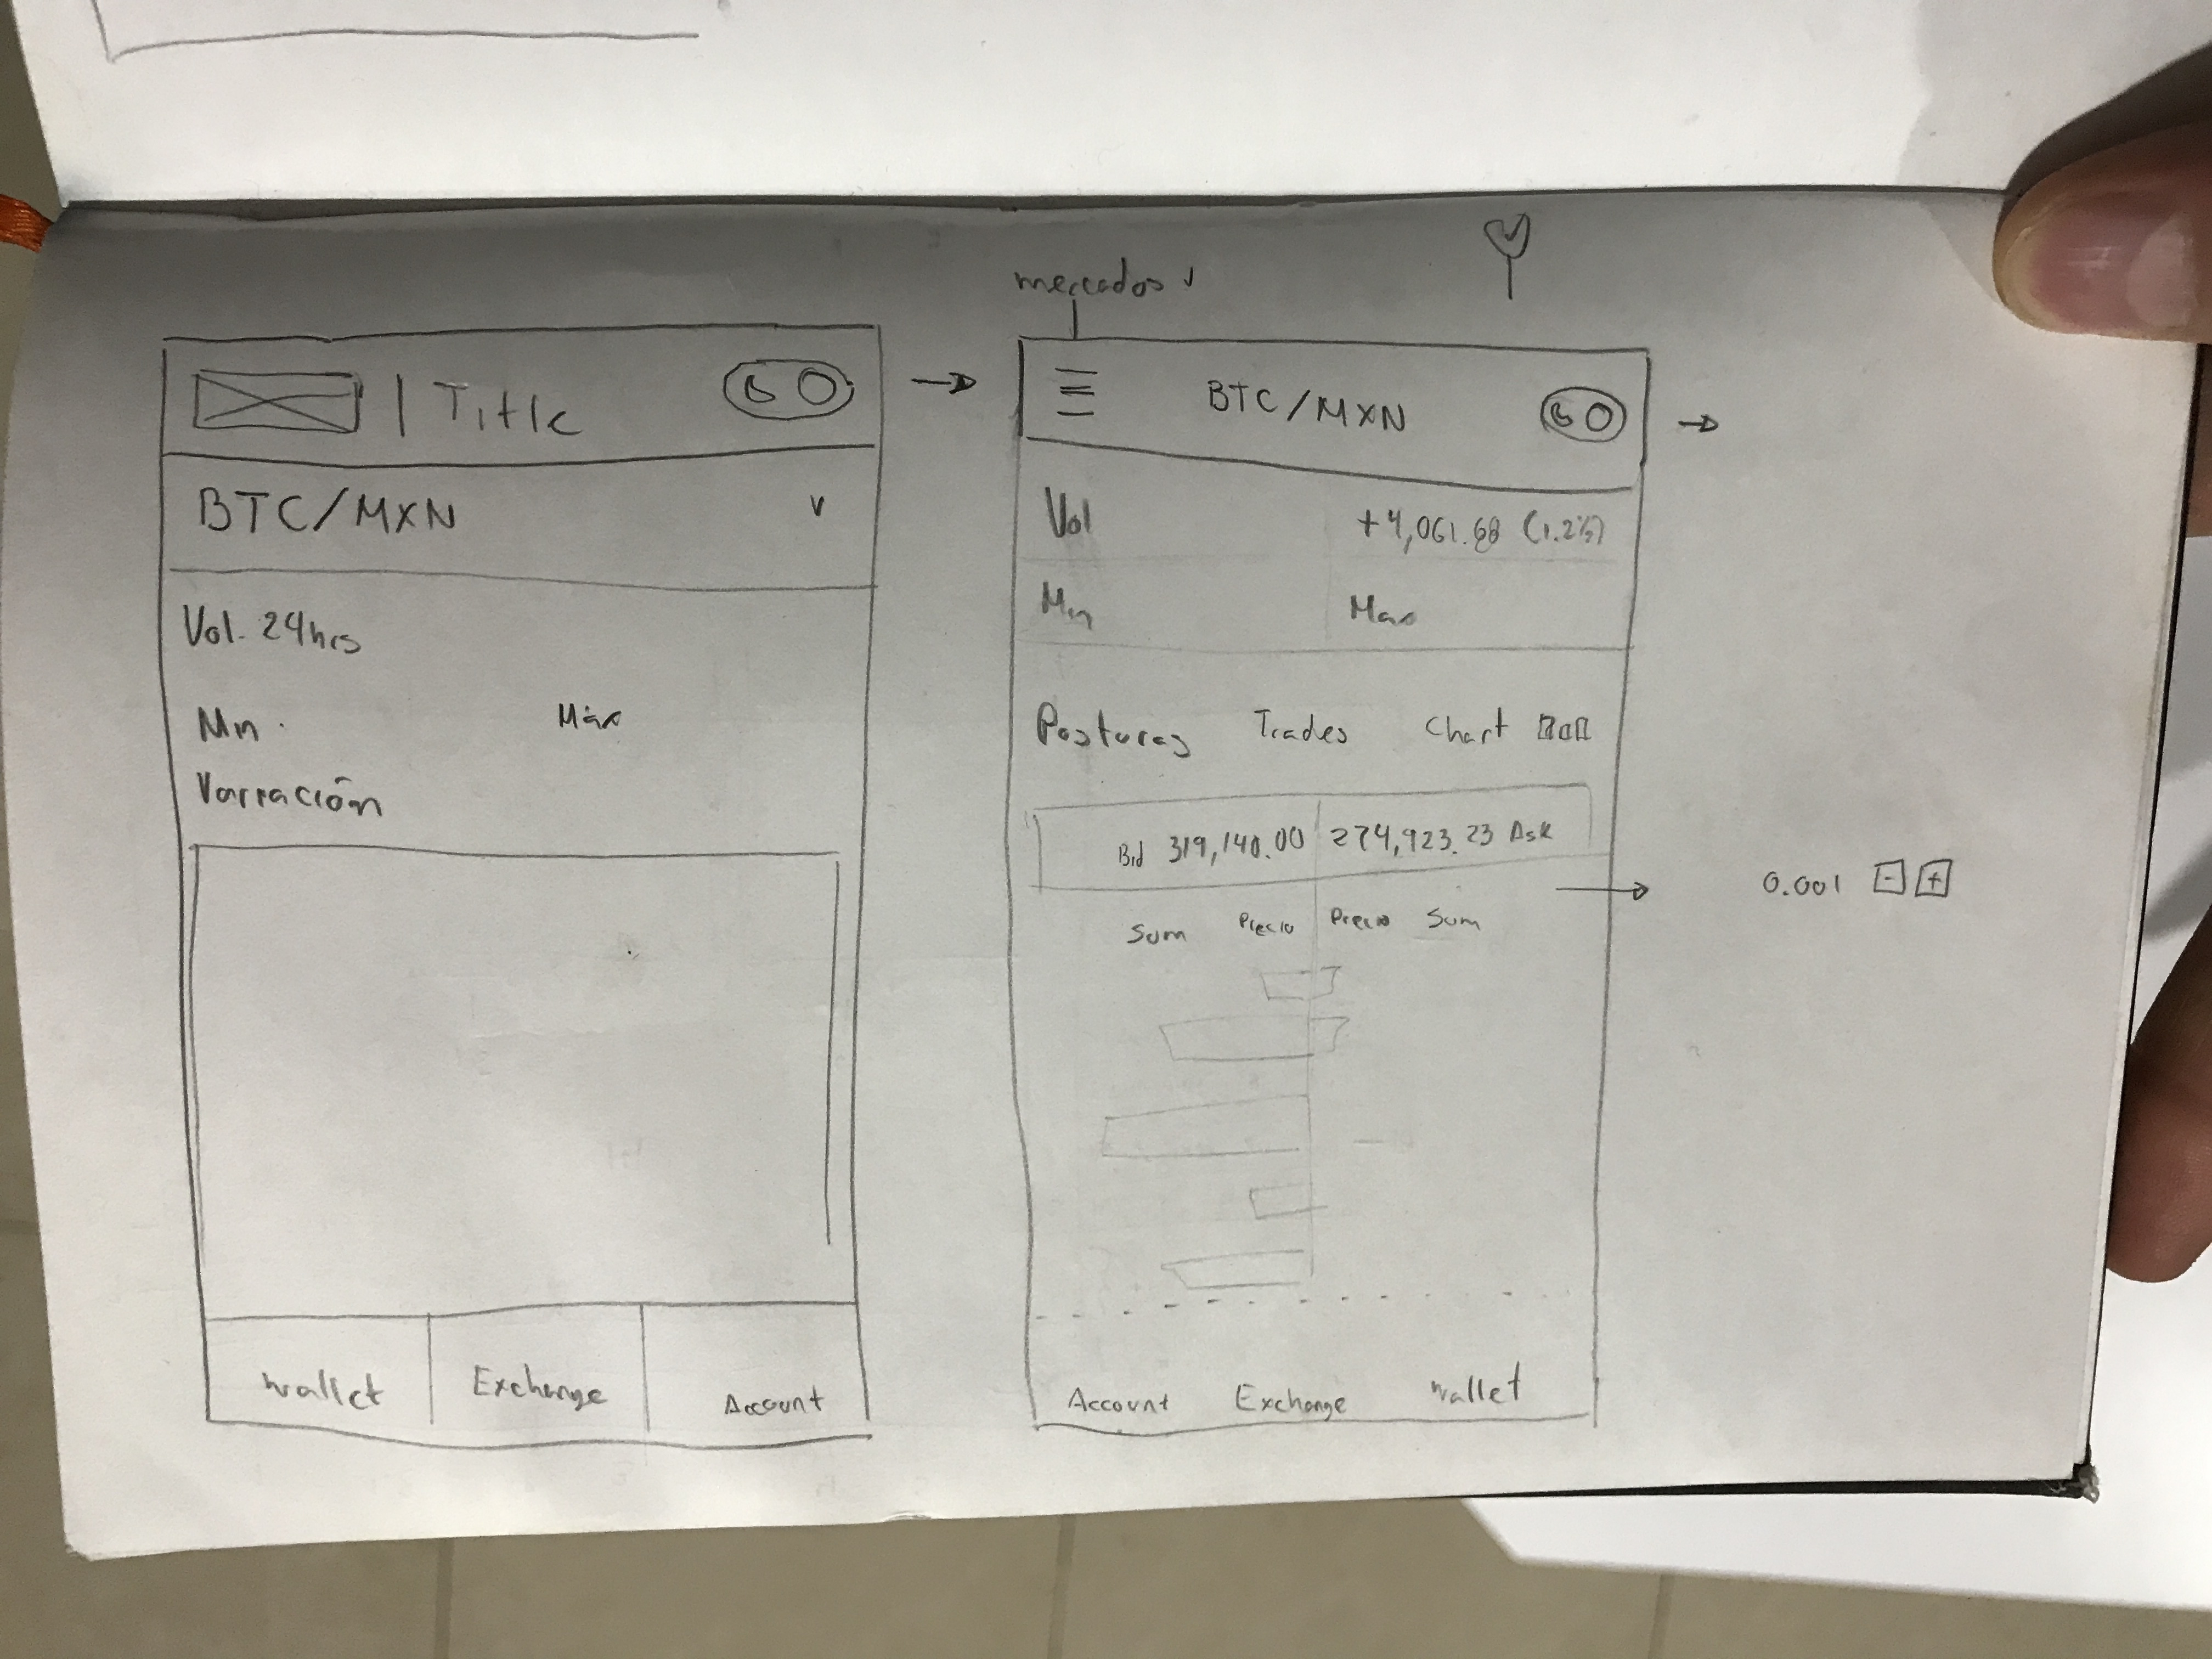 | Title
BTC/MXN v
Vol. 24hrs
Min. Máx
Variación
Wallet Exchange Account
mercados v
BTC/MXN
Vol +4,061.68 (1.2%)
Min Max
Posturas Trades Chart
Bid 319,140.00 274,923.23 Ask
Sum Precio Precio Sum
0.001 - +
Account Exchange Wallet